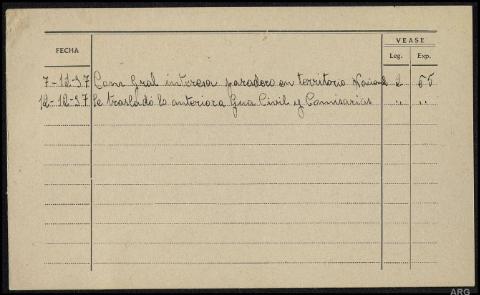 VEASE
FECHA
Leg. Exp.
7-12-37 Com Gral interesa paradero en territorio Nacional 2 65
12-12-37 Se trasladó lo anterior a Gua Civil y Comisarias " "
ARG